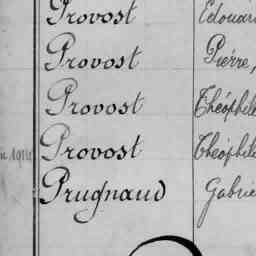 Provost Edouard
Provost Pierre,
Provost Théophile
Provost Théophile
Prugnaud Gabriel